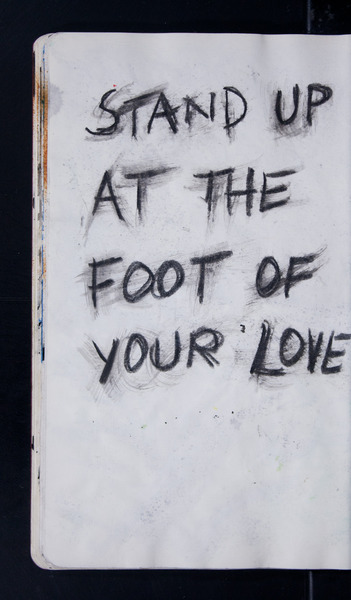 STAND UP
AT THE
FOOT OF
YOUR LOVE